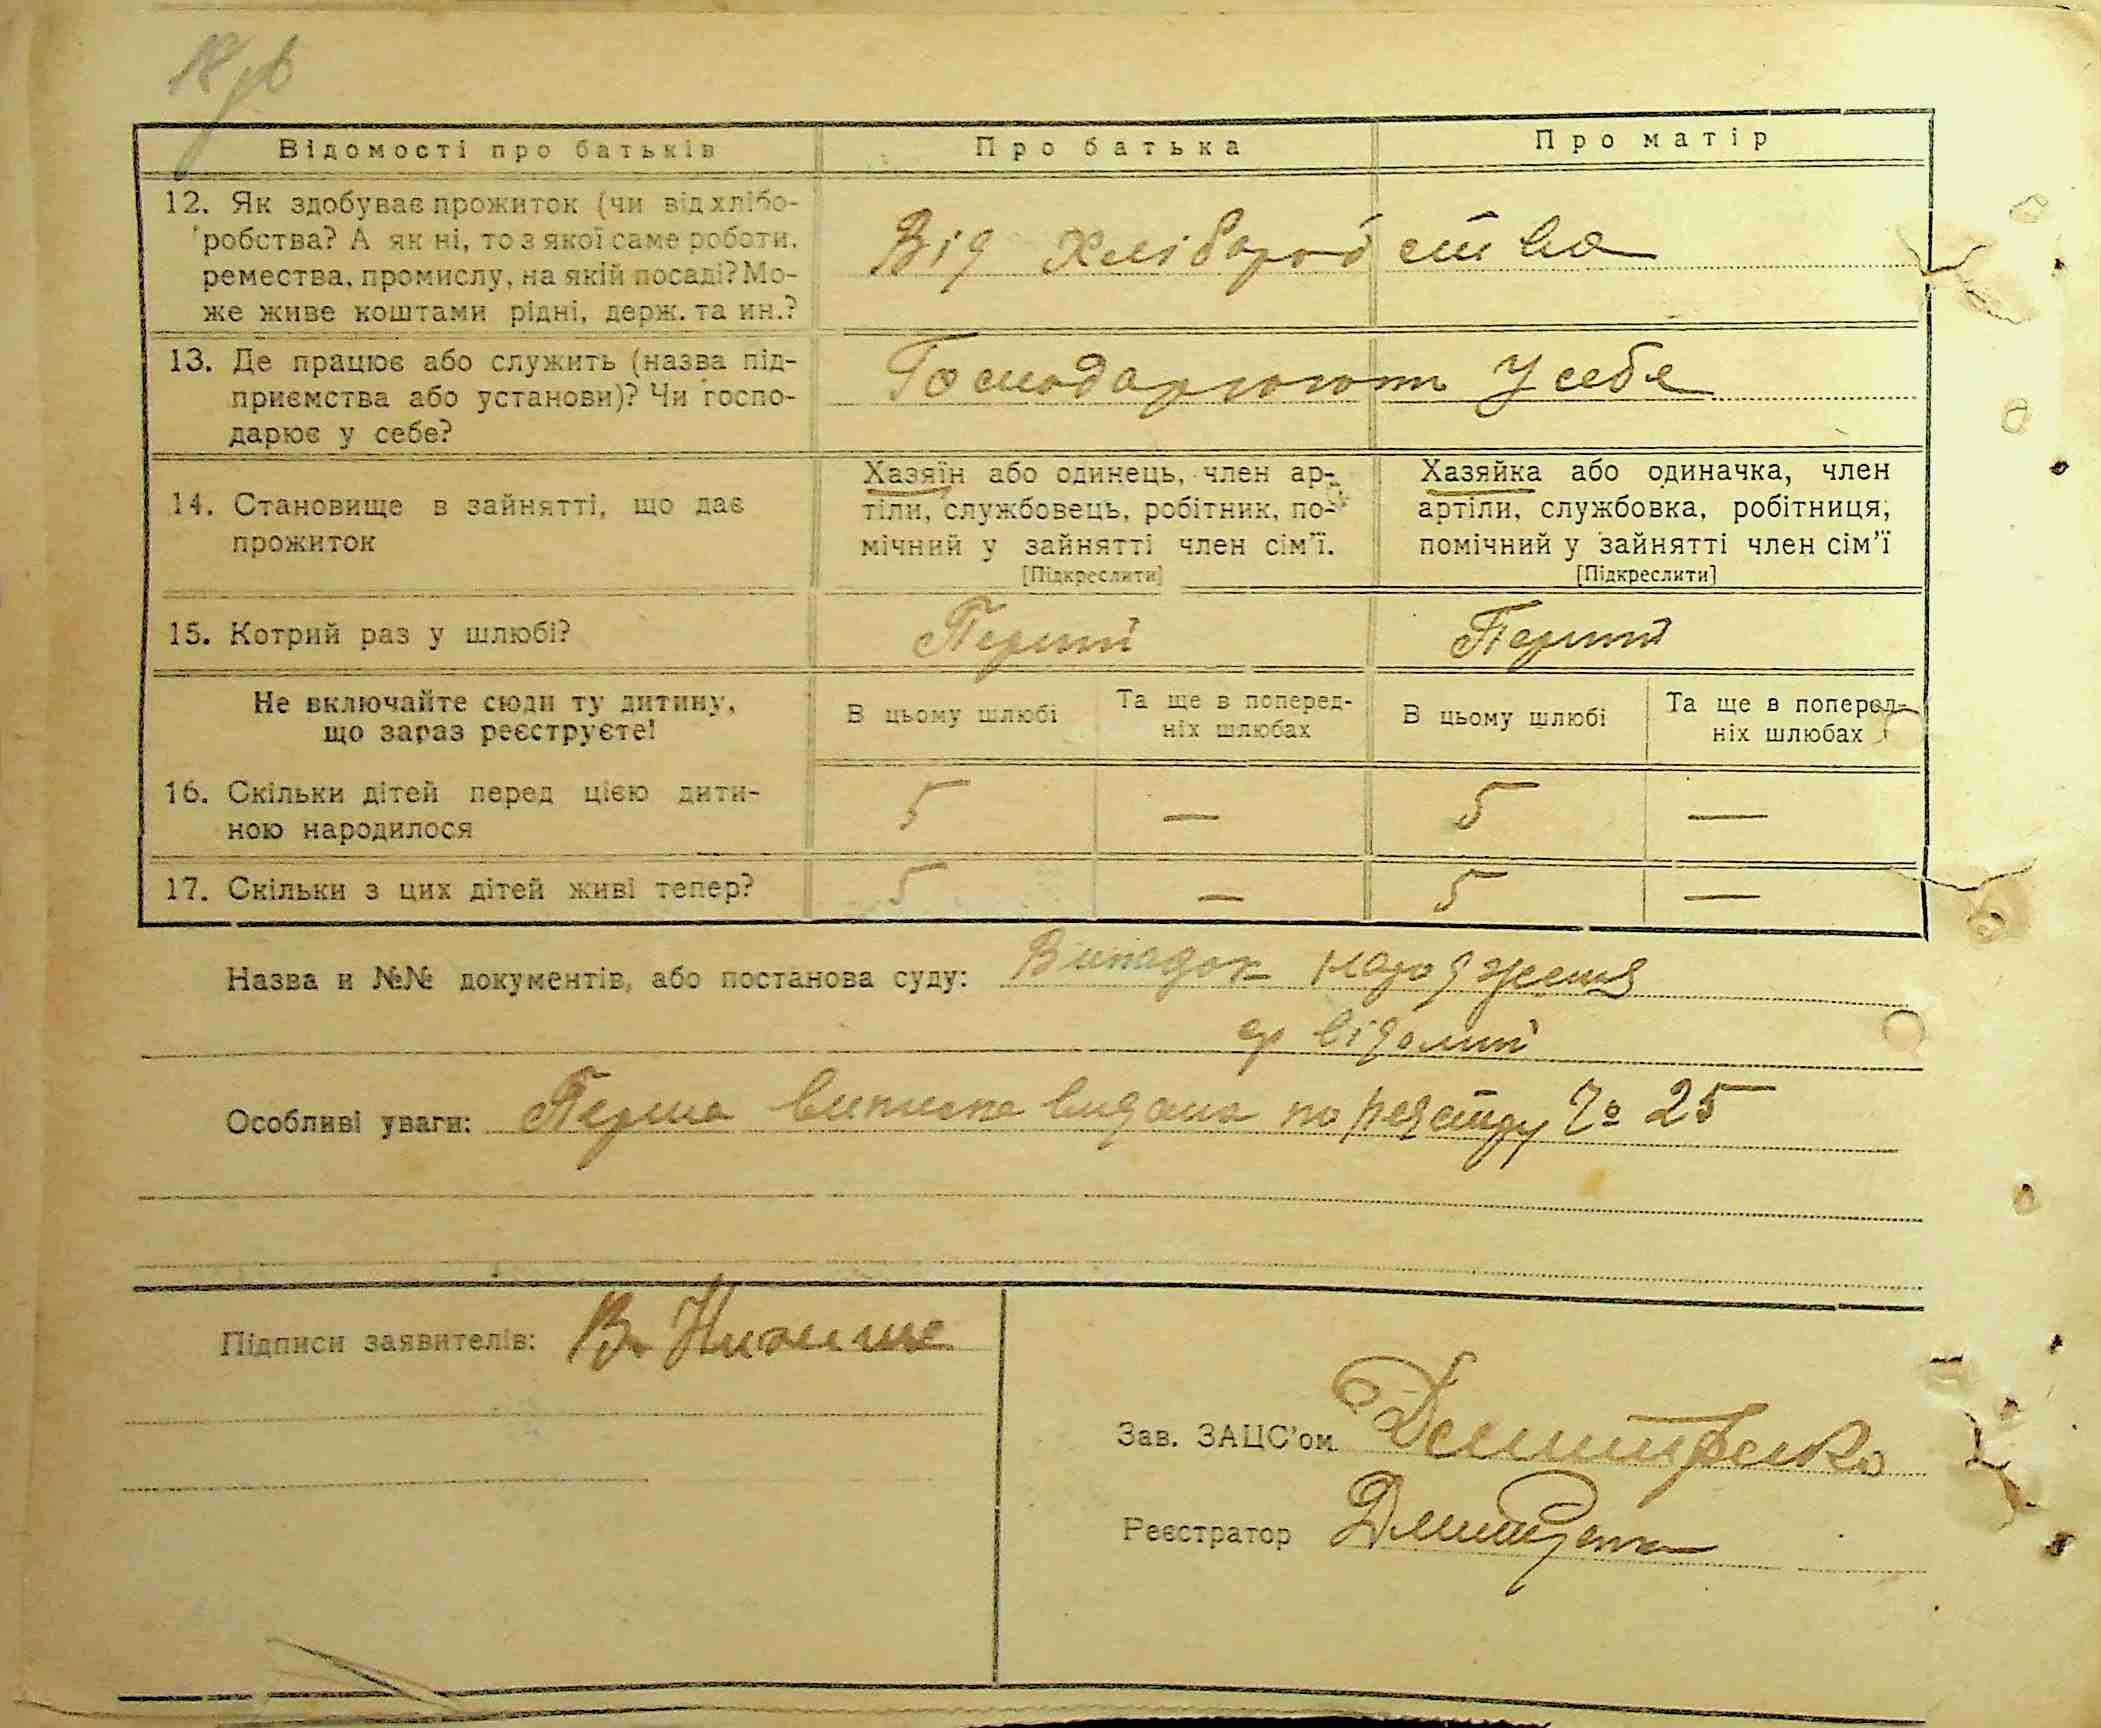 Відомості про батьків Про батька Про матір
12. Як здобуває прожиток (чи від хлібо-
робства? А як ні, то з якої саме роботи,
ремества, промислу, на якій посаді? Мо-
же живе коштами рідні, держ. та ин.?
Від хліборобства
13. Де працює або служить (назва під-
приємства або установи)? Чи госпо-
дарює у себе?
Господарюють у себе
14. Становище в зайнятті, що дає
прожиток
Хазяїн або одинець, член ар-
тіли, службовець, робітник, по-
мічний у зайнятті член сім'ї.
[Підкреслити]
Хазяйка або одиначка, член
артіли, службовка, робітниця,
помічний у зайнятті член сім'ї
[Підкреслити]
15. Котрий раз у шлюбі? Перший Перший
Не включайте сюди ту дитину,
що зараз реєструєте!
В цьому шлюбі
Та ще в поперед-
ніх шлюбах
В цьому шлюбі
Та ще в поперед-
ніх шлюбах
16. Скільки дітей перед цією дити-
ною народилося
5 — 5 —
17. Скільки з цих дітей живі тепер? 5 — 5 —
Назва и №№ документів, або постанова суду: Випадок народження
відомий
Особливі уваги: Перша виписка видана по реєстру № 25
Підписи заявителів:
Зав. ЗАЦС'ом Дмитренко
Реєстратор Дмитренко